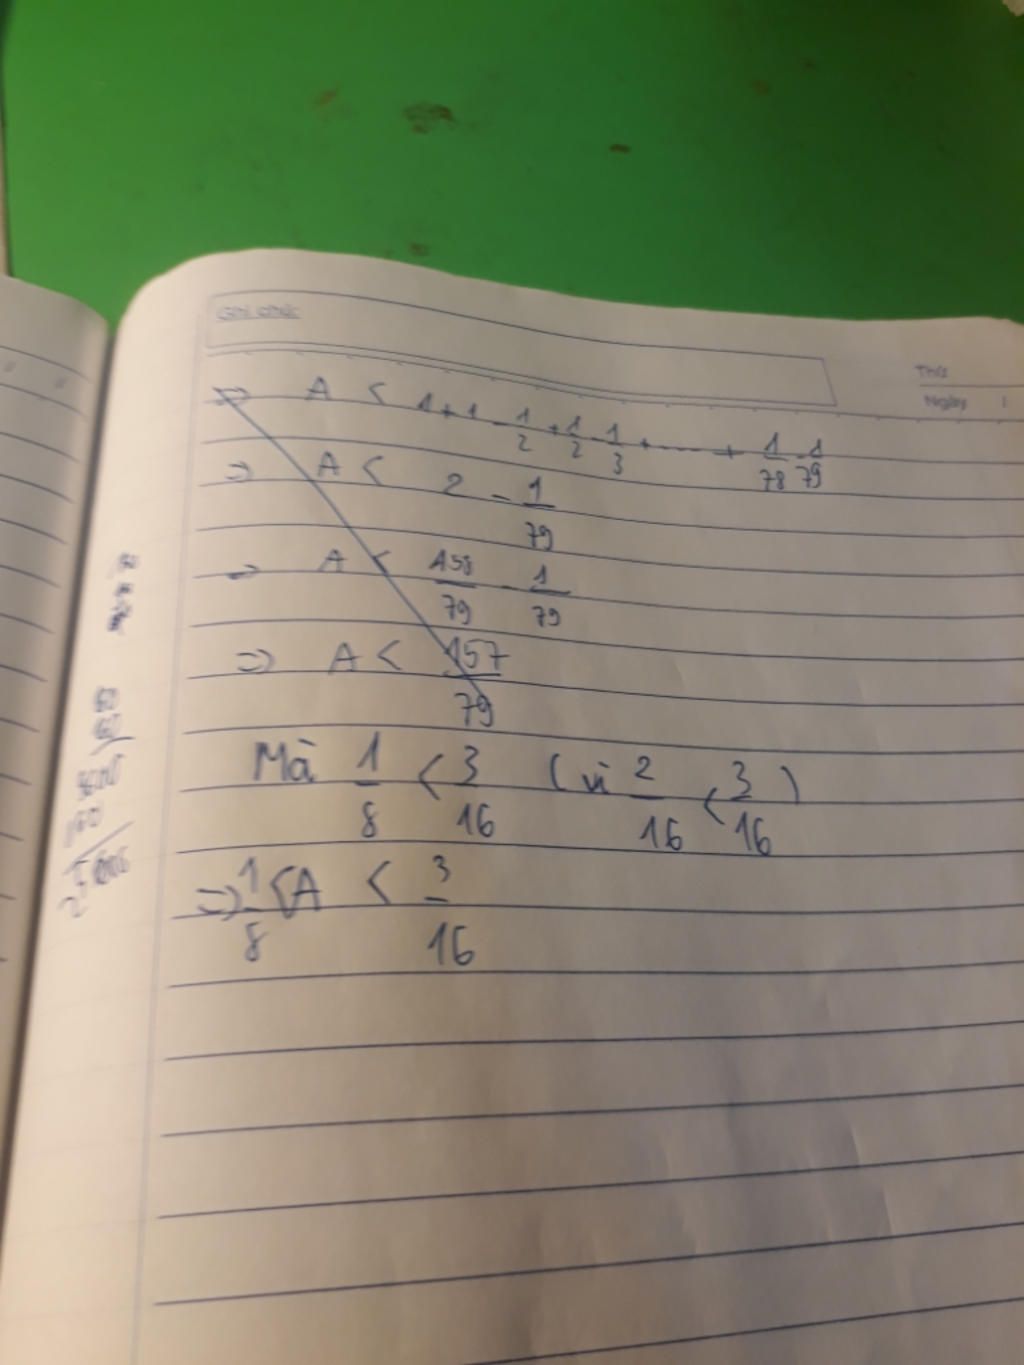 Ghi chú:
Thứ
Ngày /
=> A < 1 + 1 - 1/2 + 1/2 - 1/3 + ...... + 1/78 - 1/79
=> A < 2 - 1/79
=> A < 158/79 - 1/79
=> A < 157/79
Mà 1/8 < 3/16 (vì 2/16 < 3/16)
=> 1/8 < A < 3/16
60
60